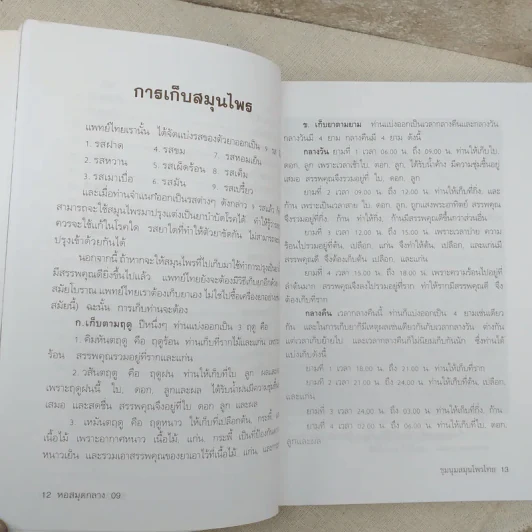 การเก็บสมุนไพร
แพทย์ไทยเรานั้น ได้จัดแบ่งรสของตัวยาออกเป็น 9 รส
1. รสฝาด 4. รสขม 7. รสหอมเย็น
2. รสหวาน 5. รสเผ็ดร้อน 8. รสเค็ม
3. รสเมาเบื่อ 6. รสมัน 9. รสเปรี้ยว
และเมื่อท่านจำแนกสรรพคุณออกเป็นรสต่างๆ ดังกล่าว 9 รสแล้ว
สามารถจะใช้สมุนไพรมาปรุงแต่งเป็นยาบำบัดโรคได้ ทำให้รู้
ควรจะใช้แก้ในโรคใด รสยาใดที่ทำให้ตัวยาขัดกัน ไม่สามารถจะ
ปรุงเข้าด้วยกันได้
นอกจากนี้ ถ้าหากจะให้สมุนไพรที่ไปเก็บมาใช้ทำการปรุง
มีสรรพคุณดียิ่งขึ้นไปแล้ว แพทย์ไทยยังจะต้องมีวิธีเก็บยาอีกด้วย
สมัยโบราณแพทย์ไทยเราต้องเก็บยาเอง ไม่ใช่ไปซื้อเครื่องยา
สมัยนี้) ฉะนั้น การเก็บท่านจะต้อง
ก. เก็บตามฤดู ปีหนึ่งๆ ท่านแบ่งออกเป็น 3 ฤดู คือ
1. คิมหันตฤดู คือ ฤดูร้อน ท่านเก็บที่รากไม้และแก่น
ร้อน สรรพคุณรวมอยู่ที่รากและแก่น
2. วสันตฤดู คือ ฤดูฝน ท่านให้เก็บที่ใบ ลูก
เพราะฤดูฝนนี้ ใบ, ดอก, ลูกและผล ได้รับน้ำฝนมีความชุ่มชื้น
เสมอ และสดชื่น สรรพคุณจึงอยู่ที่ใบ ดอก ลูก และผล
3. เหมันตฤดู คือ ฤดูหนาว ให้เก็บที่เปลือกต้น, กระพี้
เนื้อไม้ เพราะอากาศหนาว เนื้อไม้, แก่น, กระพี้ เป็นที่ป้องกัน
หนาวเย็น และรวมเอาสรรพคุณของยาเอาไว้ที่เนื้อไม้, แก่น และ
12 หอสมุดกลาง 09
ข. เก็บยาตามยาม ท่านแบ่งออกเป็นเวลากลางคืนและกลางวัน
กลางวันมี 4 ยาม กลางคืนมี 4 ยาม ดังนี้
กลางวัน ยามที่ 1 เวลา 06.00 น. ถึง 09.00 น. ท่านให้เก็บใบ,
ดอก, ลูก เพราะเวลาเช้าใบ, ดอก, ลูก, ได้รับน้ำค้าง มีความชุ่มชื้นอยู่
เสมอ สรรพคุณจึงรวมอยู่ที่ ใบ, ดอก, ลูก
ยามที่ 2 เวลา 09.00 น. ถึง 12.00 น. ท่านให้เก็บที่กิ่งและก้าน
เพราะเป็นเวลาสาย ใบ, ดอก, ลูก ถูกแสงพระอาทิตย์ สรรพคุณ
จึงรวมอยู่ที่กิ่ง ก้าน ทำให้กิ่ง, ก้านมีสรรพคุณดีขึ้นกว่าส่วนอื่น
ยามที่ 3 เวลา 12.00 น. ถึง 15.00 น. เพราะเวลาบ่าย ความ
ร้อนไปรวมอยู่ที่ต้น, เปลือก, แก่น จึงทำให้ต้น, เปลือก, และแก่นมี
สรรพคุณดี จึงต้องเก็บต้น, เปลือก, และแก่น
ยามที่ 4 เวลา 15.00 น. ถึง 18.00 น. เพราะความร้อนไปอยู่ที่
ลำต้นมาก สรรพคุณจึงลงไปรวมอยู่ที่ราก ทำให้รากมีสรรพคุณดี จึง
ต้องเก็บที่ราก
กลางคืน เวลากลางคืนนี้ ท่านก็แบ่งออกเป็น 4 ยามเช่นเดียว
กัน และในการเก็บยาก็มีเหตุผลเช่นเดียวกันกับเวลากลางวัน ต่างกัน
แต่เวลาเก็บยามักไป และเวลากลางคืนก็ไม่นิยมเก็บกันนัก ซึ่งท่านได้
แบ่งเก็บดังนี้
ยามที่ 1 เวลา 18.00 น. ถึง 21.00 น. ท่านให้เก็บที่ราก
ยามที่ 2 เวลา 21.00 น. ถึง 24.00 น. ท่านให้เก็บที่ต้น, เปลือก,
และแก่น
ยามที่ 3 เวลา 24.00 น. ถึง 03.00 น. ท่านให้เก็บที่กิ่ง, ก้าน
ยามที่ 4 เวลา 03.00 น. ถึง 06.00 น. ท่านให้เก็บที่ใบ, ดอก,
ลูกและผล
ชุมนุมสมุนไพรไทย 13